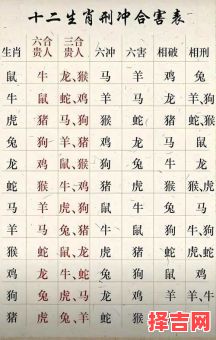 十二生肖刑冲合害表
生肖 六合贵人 三合贵人 六冲 六害 相破 相刑
鼠 牛 龙、猴 马 羊 鸡 兔
牛 鼠 蛇、鸡 羊 马 龙 羊、狗
虎 猪 马、狗 猴 蛇 猪 猴、蛇
兔 狗 羊、猪 鸡 龙 马 鼠
龙 鸡 鼠、猴 狗 兔 牛 龙
蛇 猴 牛、鸡 猪 虎 猴 猴、虎
马 羊 虎、狗 鼠 牛 兔 马
羊 马 兔、猪 牛 鼠 狗 狗、牛
猴 蛇 鼠、龙 虎 猪 蛇 虎、蛇
鸡 龙 牛、蛇 兔 狗 鼠 鸡
狗 兔 虎、马 龙 鸡 羊 牛、羊
猪 虎 兔、羊 蛇 猴 虎 猪
择吉网